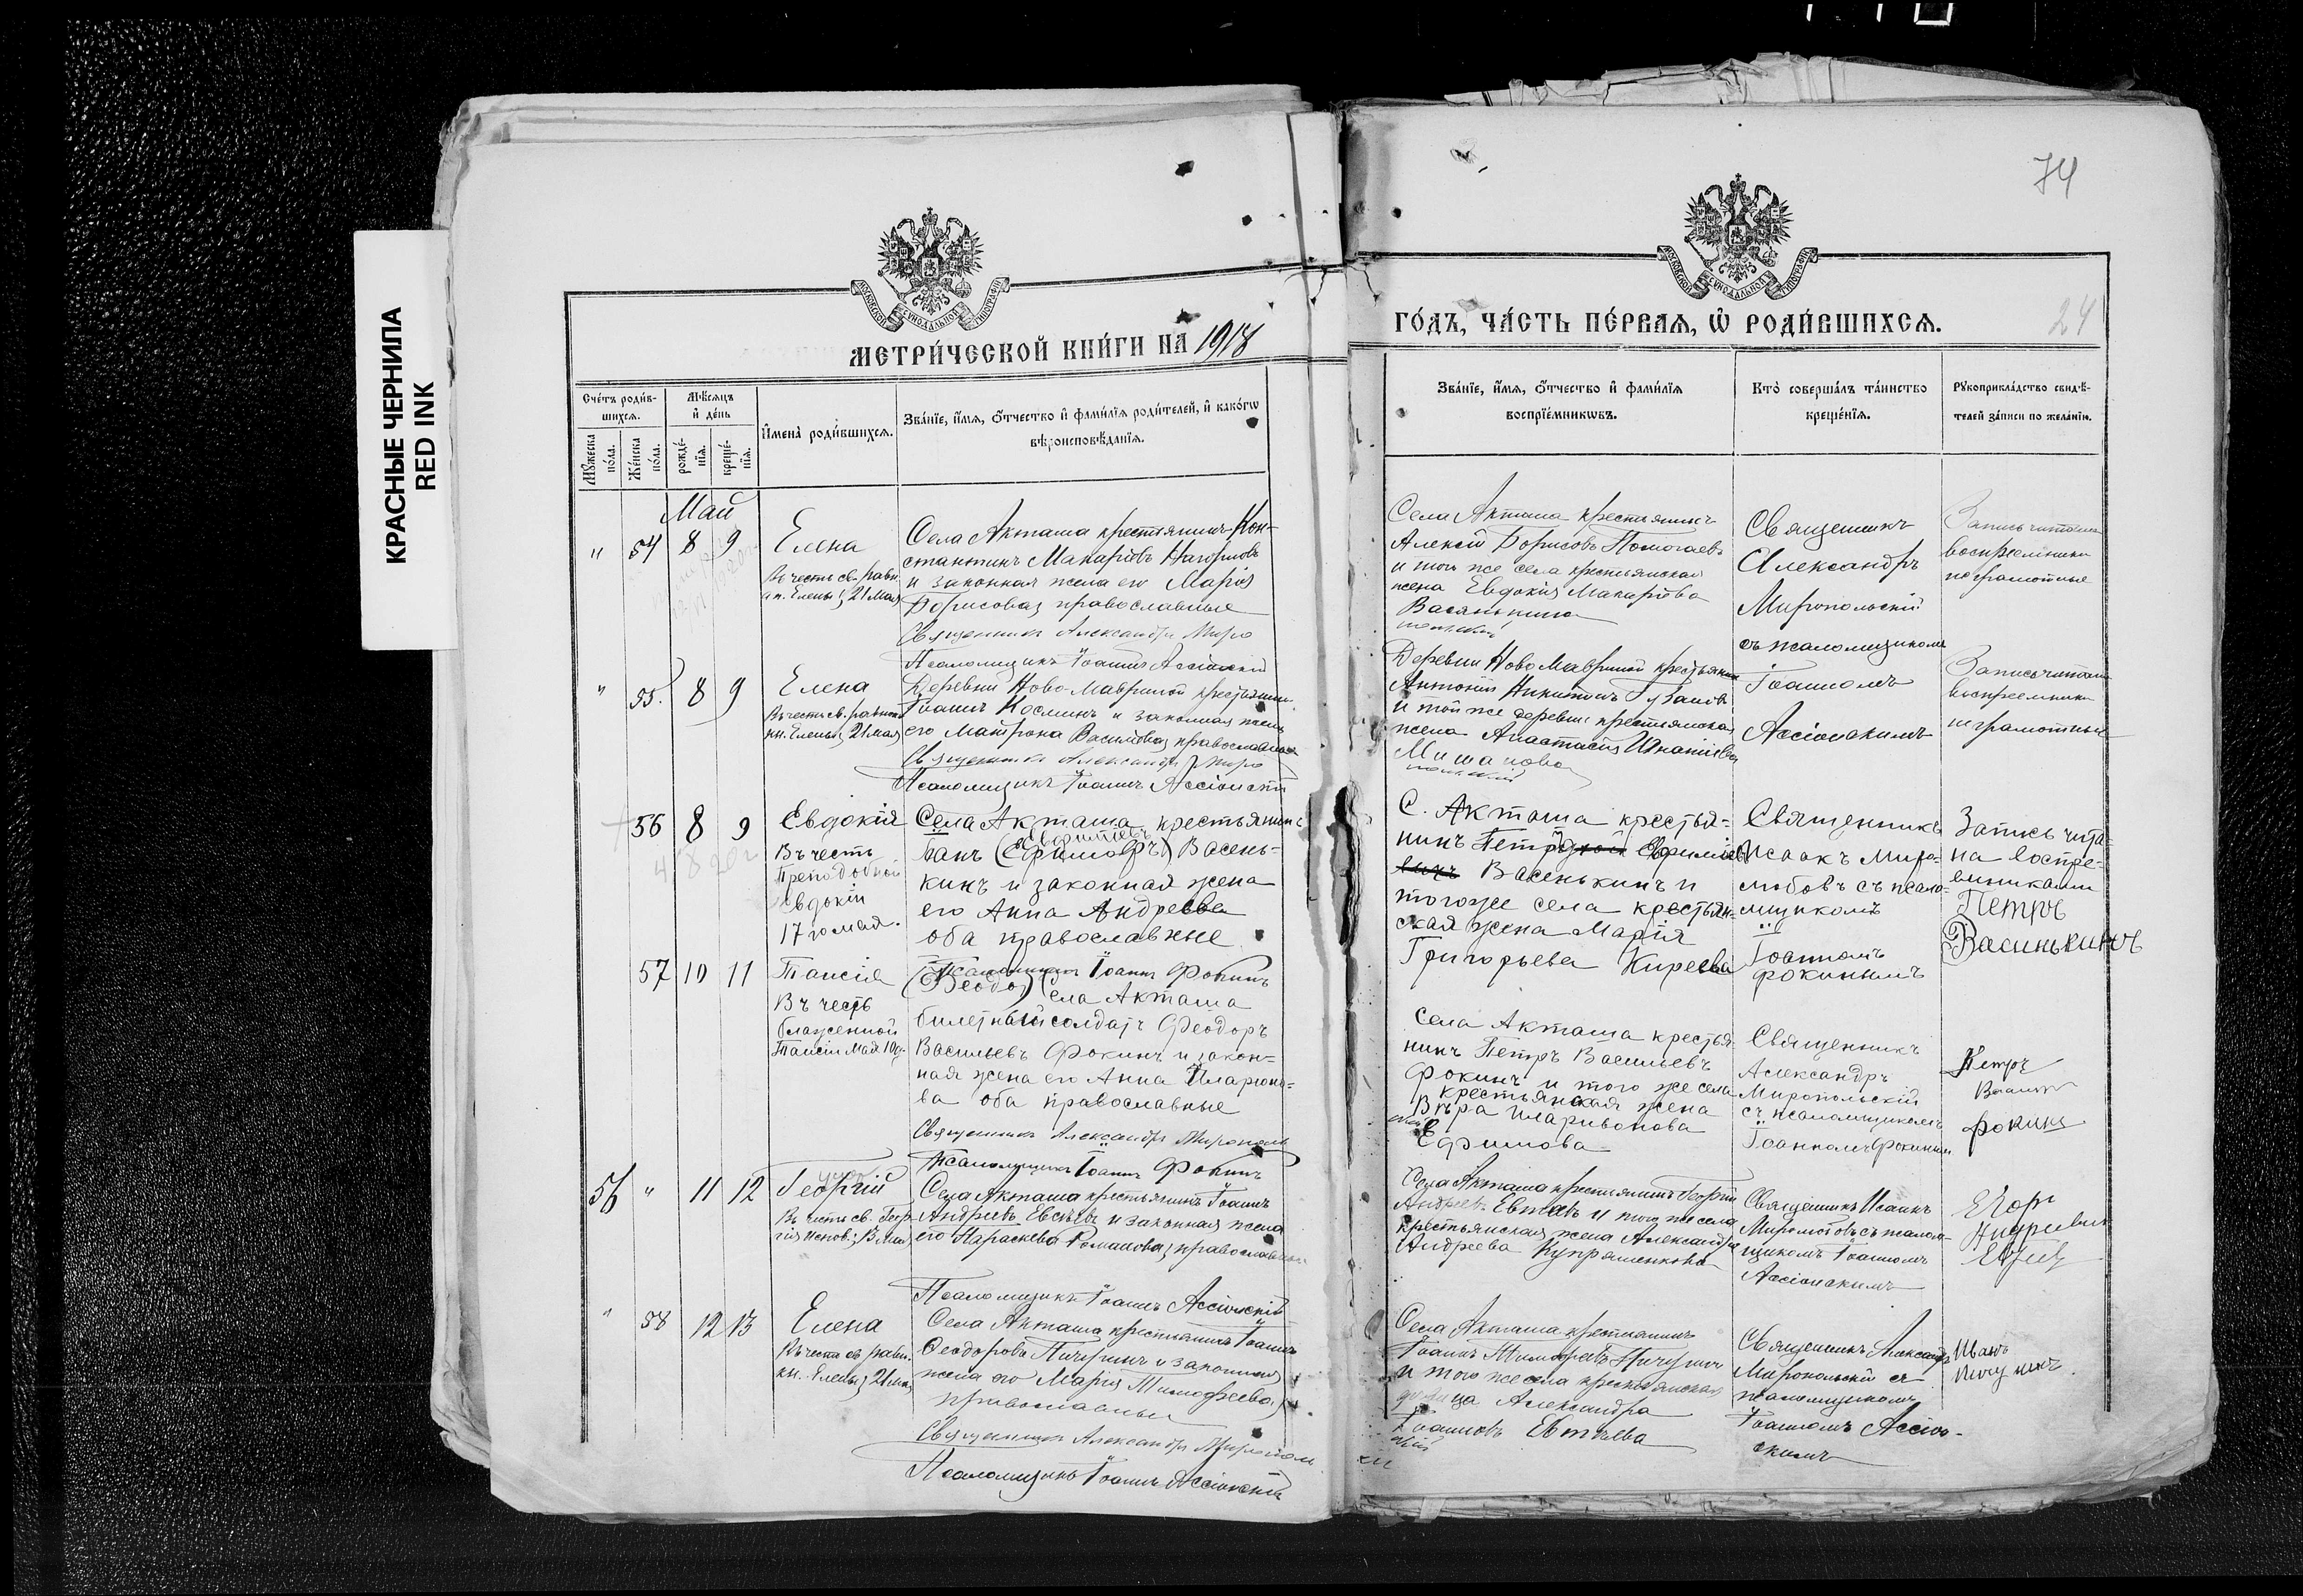 КРАСНЫЕ ЧЕРНИЛА
RED INK
74
24
МОСКОВСКОЙ СѴНОДАЛЬНОЙ ТИПОГРАФІИ
МОСКОВСКОЙ СѴНОДАЛЬНОЙ ТИПОГРАФІИ
МЕТРИ́ЧЕСКОЙ КНИ́ГИ НА 1918
ГО́ДЪ, ЧА́СТЬ ПЕ́РВАЯ, Ѡ҆ РОДИ́ВШИХСЯ.
Сче́тъ роди́в-
шихся.
Мꙋ́жеска
по́ла.
Же́нска
по́ла.
Мѣ́сяцъ
и҆ де́нь
рожде́-
нїя.
креще́-
нїя.
И҆мена̀ роди́вшихся.
Зва́нїе, и҆́мя, ѻ҆́тчество и҆ фами́лїя роди́телей, и҆ како́гѡ
вѣ́роисповѣ́данїя.
Зва́нїе, и҆́мя, ѻ҆́тчество и҆ фами́лїя
воспрїе́мникѡвъ.
Кто̀ соверша́лъ та́инство
креще́нїя.
Рꙋкоприкла́дство свидѣ́-
телей за́писи по жела́нїю.
Май
" 54 8 9
Елена
Въ честь св. равн.
ап. Елены; 21 мая
Села Акташа крестьянинъ Кон-
стантинъ Макаріовъ
и законная жена его Марія
Борисова; православные
Священникъ Александръ Миро
Псаломщикъ Іоаннъ Ассіонскій
Села Акташа крестьянинъ
Алексій Борисовъ
и того же села крестьянская
жена Евдокія Макаріова
Васянькина
польскій
Священникъ
Александръ
Миропольскій
съ псаломщикомъ
Іоанномъ
Ассіонскимъ
Запись читана
воспреемники
неграмотные
" 55. 8 9
Елена
Въ честь св. равноап.
кн. Елены; 21 мая
Деревни Ново-Мавриной крестьянин.
Іоаннъ Косминъ и законная жена
его Матрона Василіова; православные
Священникъ Александръ Миро
Псаломщикъ Іоаннъ Ассіонскій
Деревни Ново Мавриной крестьянинъ
Антоній Никитинъ
и той же деревни крестьянская
жена Анастасія Игнатіева
Мишанова
польскій
Запись читана
воспреемники
неграмотные
56 8 9
Евдокія
Въ честь
Преподобной
Евдокіи
17 го мая.
Села Акташа крестьянинъ
(Ефимовъ) Васень-
кинъ и законная жена
его Анна Андреева
оба православные
Псаломщикъ Іоаннъ Фокинъ
С. Акташа крестья-
нинъ Петръ Ефиміев
Васенькинъ и
того же села крестьян-
ская жена Марія
Григорьева Киреева
Священникъ
Исаакъ Миро-
любовъ съ псало-
мщикомъ
Іоанномъ
Фокинымъ
Запись чита-
на воспре-
емниками
Петръ
Васинькинъ
57 10 11
Таисія
Въ честь
блаженной
Таисіи мая 10 д.
Села Акташа
билетный солдатъ Феодоръ
Васильевъ Фокинъ и закон-
ная жена его Анна Иларіоно-
ва оба православные
Священникъ Александръ Мирополь
Псаломщикъ Іоаннъ Фокинъ
Села Акташа крестья-
нинъ Петръ Васильевъ
Фокинъ и того же села
крестьянская жена
Вѣра Иларионова
скій
Ефимова
Священникъ
Александръ
Миропольскій
съ псаломщикомъ
Іоанномъ Фокинымъ
Петръ
Фокинъ
56 " 11 12
Георгій
Въ честь св. Геор-
гія Испов.; 13 мая
Села Акташа крестьянинъ Іоаннъ
Андреевъ Евсѣевъ и законная жена
его Параскева Романова; православные
Псаломщикъ Іоаннъ Ассіонскій
Села Акташа крестьянинъ Георгій
Андреевъ и того же села
крестьянская жена Александра
Андреева Купряшенкова
Священникъ Исаакъ
Миролюбовъ съ псалом-
щикомъ Іоанномъ
Ассіонскимъ
Егоръ
" 58 12 13
Елена
Въ честь св. равн.
кн. Елены; 21 мая
Села Акташа крестьянинъ Іоаннъ
Ѳеодоровъ Пичугинъ и законная
жена его Марія Тимофеева;
православные
Священникъ Александръ Мирополь
Псаломщикъ Іоаннъ Ассіонскій
Села Акташа крестьянинъ
Іоаннъ Тимофеевъ Пичугинъ
и того же села крестьянская
девица Александра
Іоаннова Евтѣева
скій
Священникъ Александръ
Миропольскій съ
псаломщикомъ
Іоанномъ Ассіон-
скимъ
Иванъ
Пичугинъ.